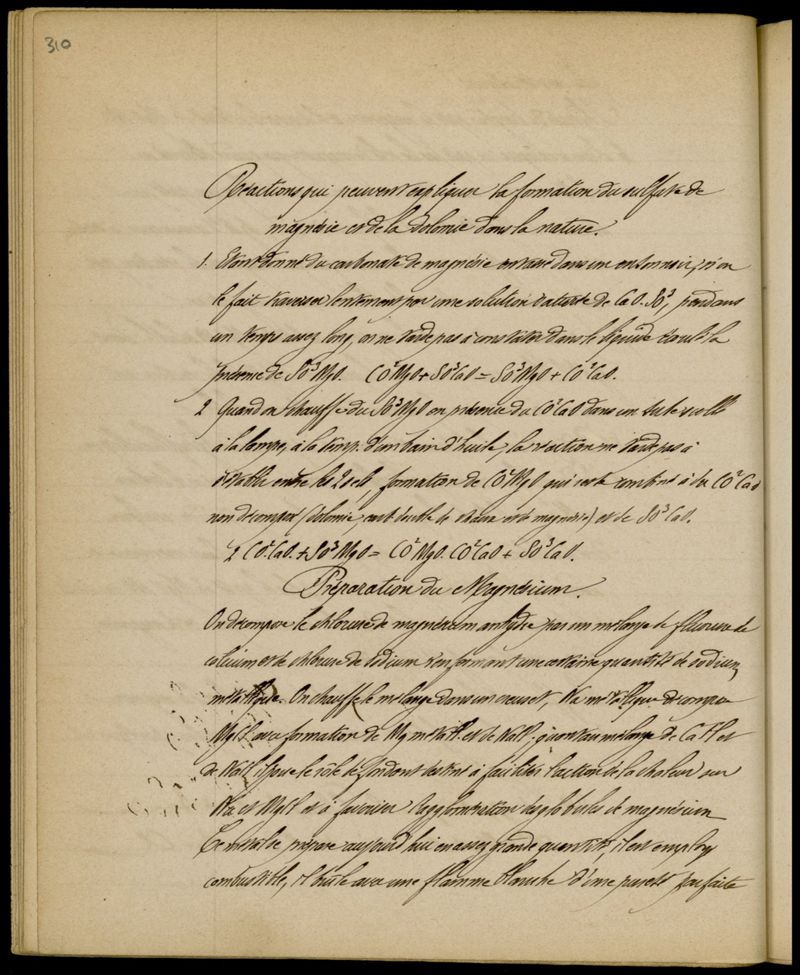 310
Réactions qui peuvent expliquer la formation du sulfate de
magnésie et de la dolomie dans la nature.
1. Etant donné du carbonate de magnésie entassé dans un entonnoir, si on
le fait traverser lentement par une solution saturée de CaO.SO³, pendant
un temps assez long, on ne tarde pas à constater dans le liquide écoulé la
présence de SO³MgO. CO²MgO + SO³CaO = SO³MgO + CO²CaO.
2 Quand on chauffe du SO³MgO en présence du CO²CaO dans un tube scellé
à la lampe, à la temp. d'un bain d'huile, la réaction ne tarde pas à
s'établir entre les 2 sels, formation de CO²MgO qui reste combiné à du CO²CaO
non décomposé (dolomie, carb. double de chaux et de magnésie) et de SO³CaO.
2 CO²CaO + SO³MgO = CO²MgO.CO²CaO + SO³CaO.
Préparation du Magnésium.
On décompose le chlorure de magnésium anhydre par un mélange de fluorure de
calcium et de chlorure de sodium renfermant une certaine quantité de sodium
métallique. On chauffe le mélange dans un creuset, Na métallique décompose
MgCl avec formation de Mg métall. et de NaCl; quant au mélange de CaFl et
de NaCl il joue le rôle de fondant destiné à faciliter l'action de la chaleur sur
Na et MgCl et à favoriser l'agglomération des globules de magnésium
Ce métal se prépare aujourd'hui en assez grande quantité, il est employé
combustible, il brûle avec une flamme blanche d'une pureté parfaite